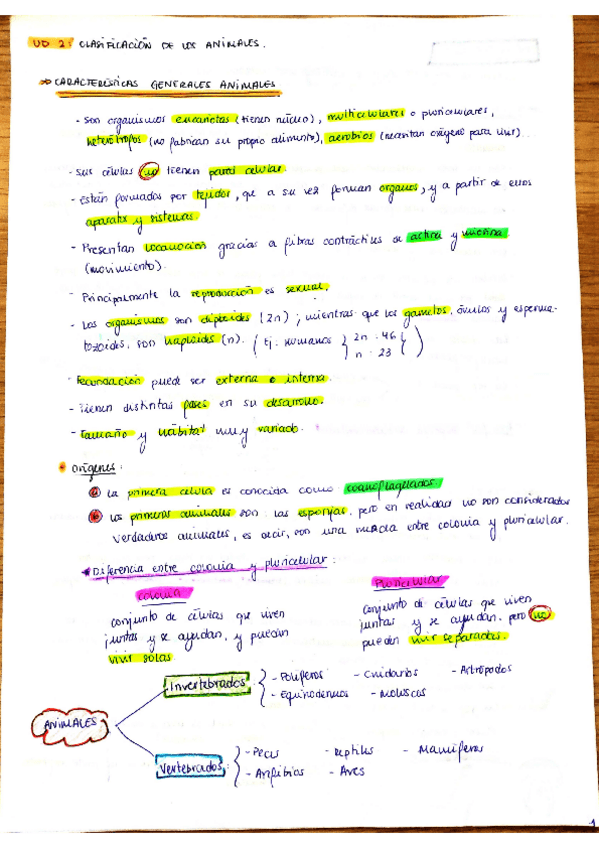 UD 2: CLASIFICACIÓN DE LOS ANIMALES.
CARACTERÍSTICAS GENERALES ANIMALES
- Son organismos eucariotas (tienen núcleo), multicelulares o pluricelulares,
heterótrofos (no fabrican su propio alimento), aerobios (necesitan oxígeno para vivir).
- Sus células no tienen pared celular.
- Están formados por tejidos, que a su vez forman órganos, y a partir de ellos
aparatos y sistemas.
- Presentan locomoción gracias a fibras contráctiles de actina y miosina
(movimiento).
- Principalmente la reproducción es sexual.
- Los organismos son diploides (2n); mientras que los gametos, óvulos y esperma-
tozoides, son haploides (n). (Ej: Humanos { 2n · 46
n · 23 } )
- Fecundación puede ser externa o interna.
- Tienen distintas fases en su desarrollo.
- Tamaño y hábitat muy variado.
• Orígenes:
a La primera célula es conocida como coanoflagelados.
b Los primeros animales son las esponjas, pero en realidad no son considerados
verdaderos animales, es decir, son una mezcla entre colonia y pluricelular.
* Diferencia entre colonia y pluricelular:
COLONIA
conjunto de células que viven
juntas y se ayudan, y pueden
vivir solas.
Pluricelular
conjunto de células que viven
juntas y se ayudan, pero no
pueden vivir separadas.
ANIMALES
Invertebrados
- Poríferos - Cnidarios - Artrópodos
- Equinodermos - Moluscos
Vertebrados
- Peces - Reptiles - Mamíferos
- Anfibios - Aves
1